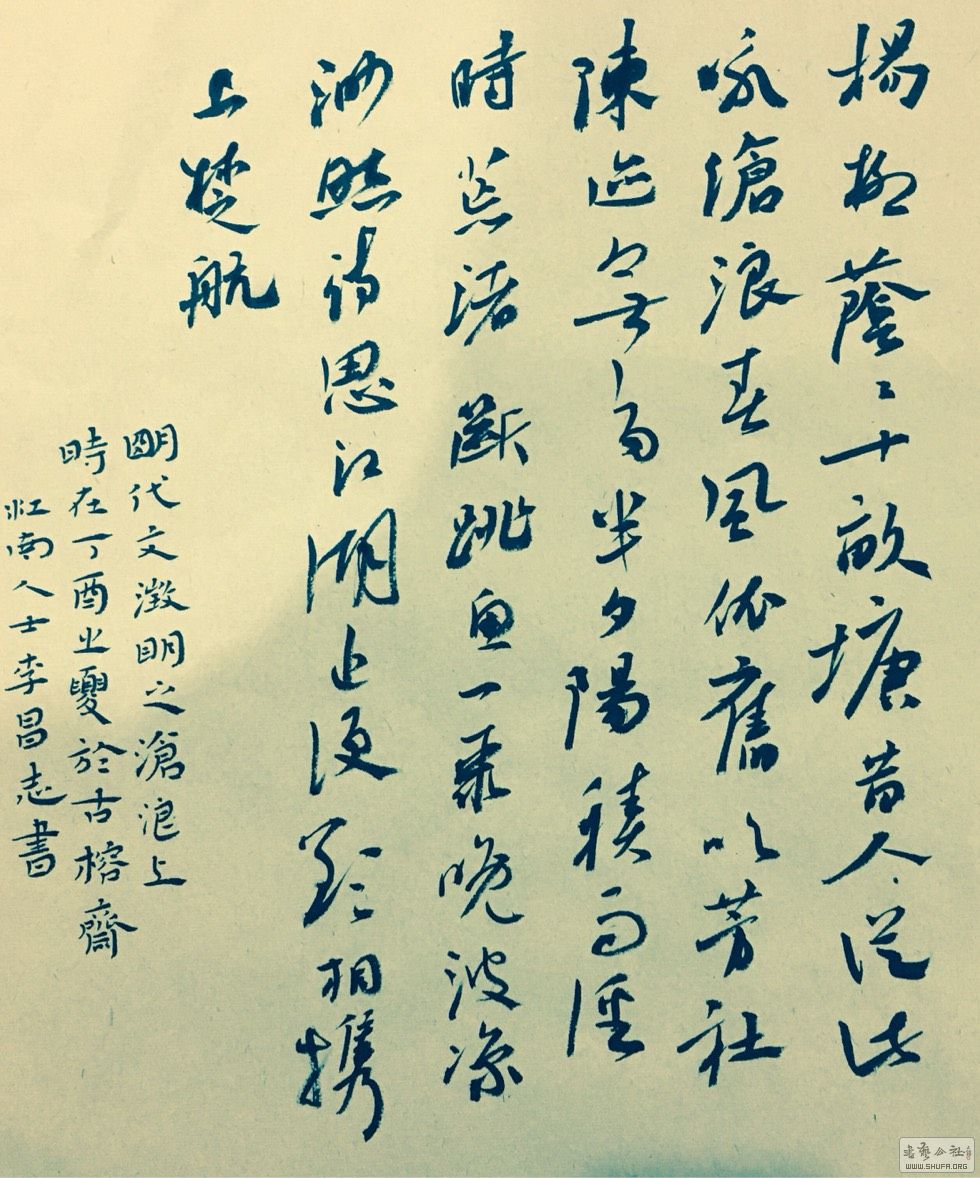 楊柳蔭〻十畝塘昔人從此
咏滄浪春風依舊吹芳社
陳迹無多半夕陽積雨徑
時荒渚斷跳魚一聚晚波凉
渺然詩思江湖近便欲相攜
上楚航
明代文澂明之滄浪上
時在丁酉之夏於古榕齋
江南人士李昌志書
书艺公社
WWW.SHUFA.ORG